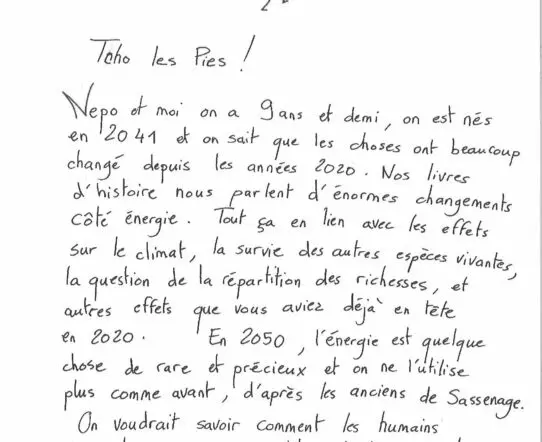 2
Tcho les Pies !
Nepo et moi on a 9 ans et demi, on est nés
en 2041 et on sait que les choses ont beaucoup
changé depuis les années 2020. Nos livres
d'histoire nous parlent d'énormes changements
côté énergie. Tout ça en lien avec les effets
sur le climat, la survie des autres espèces vivantes,
la question de la répartition des richesses, et
autres effets que vous aviez déjà en tête
en 2020. En 2050, l'énergie est quelque
chose de rare et précieux et on ne l'utilise
plus comme avant, d'après les anciens de Sassenage.
On voudrait savoir comment les humains